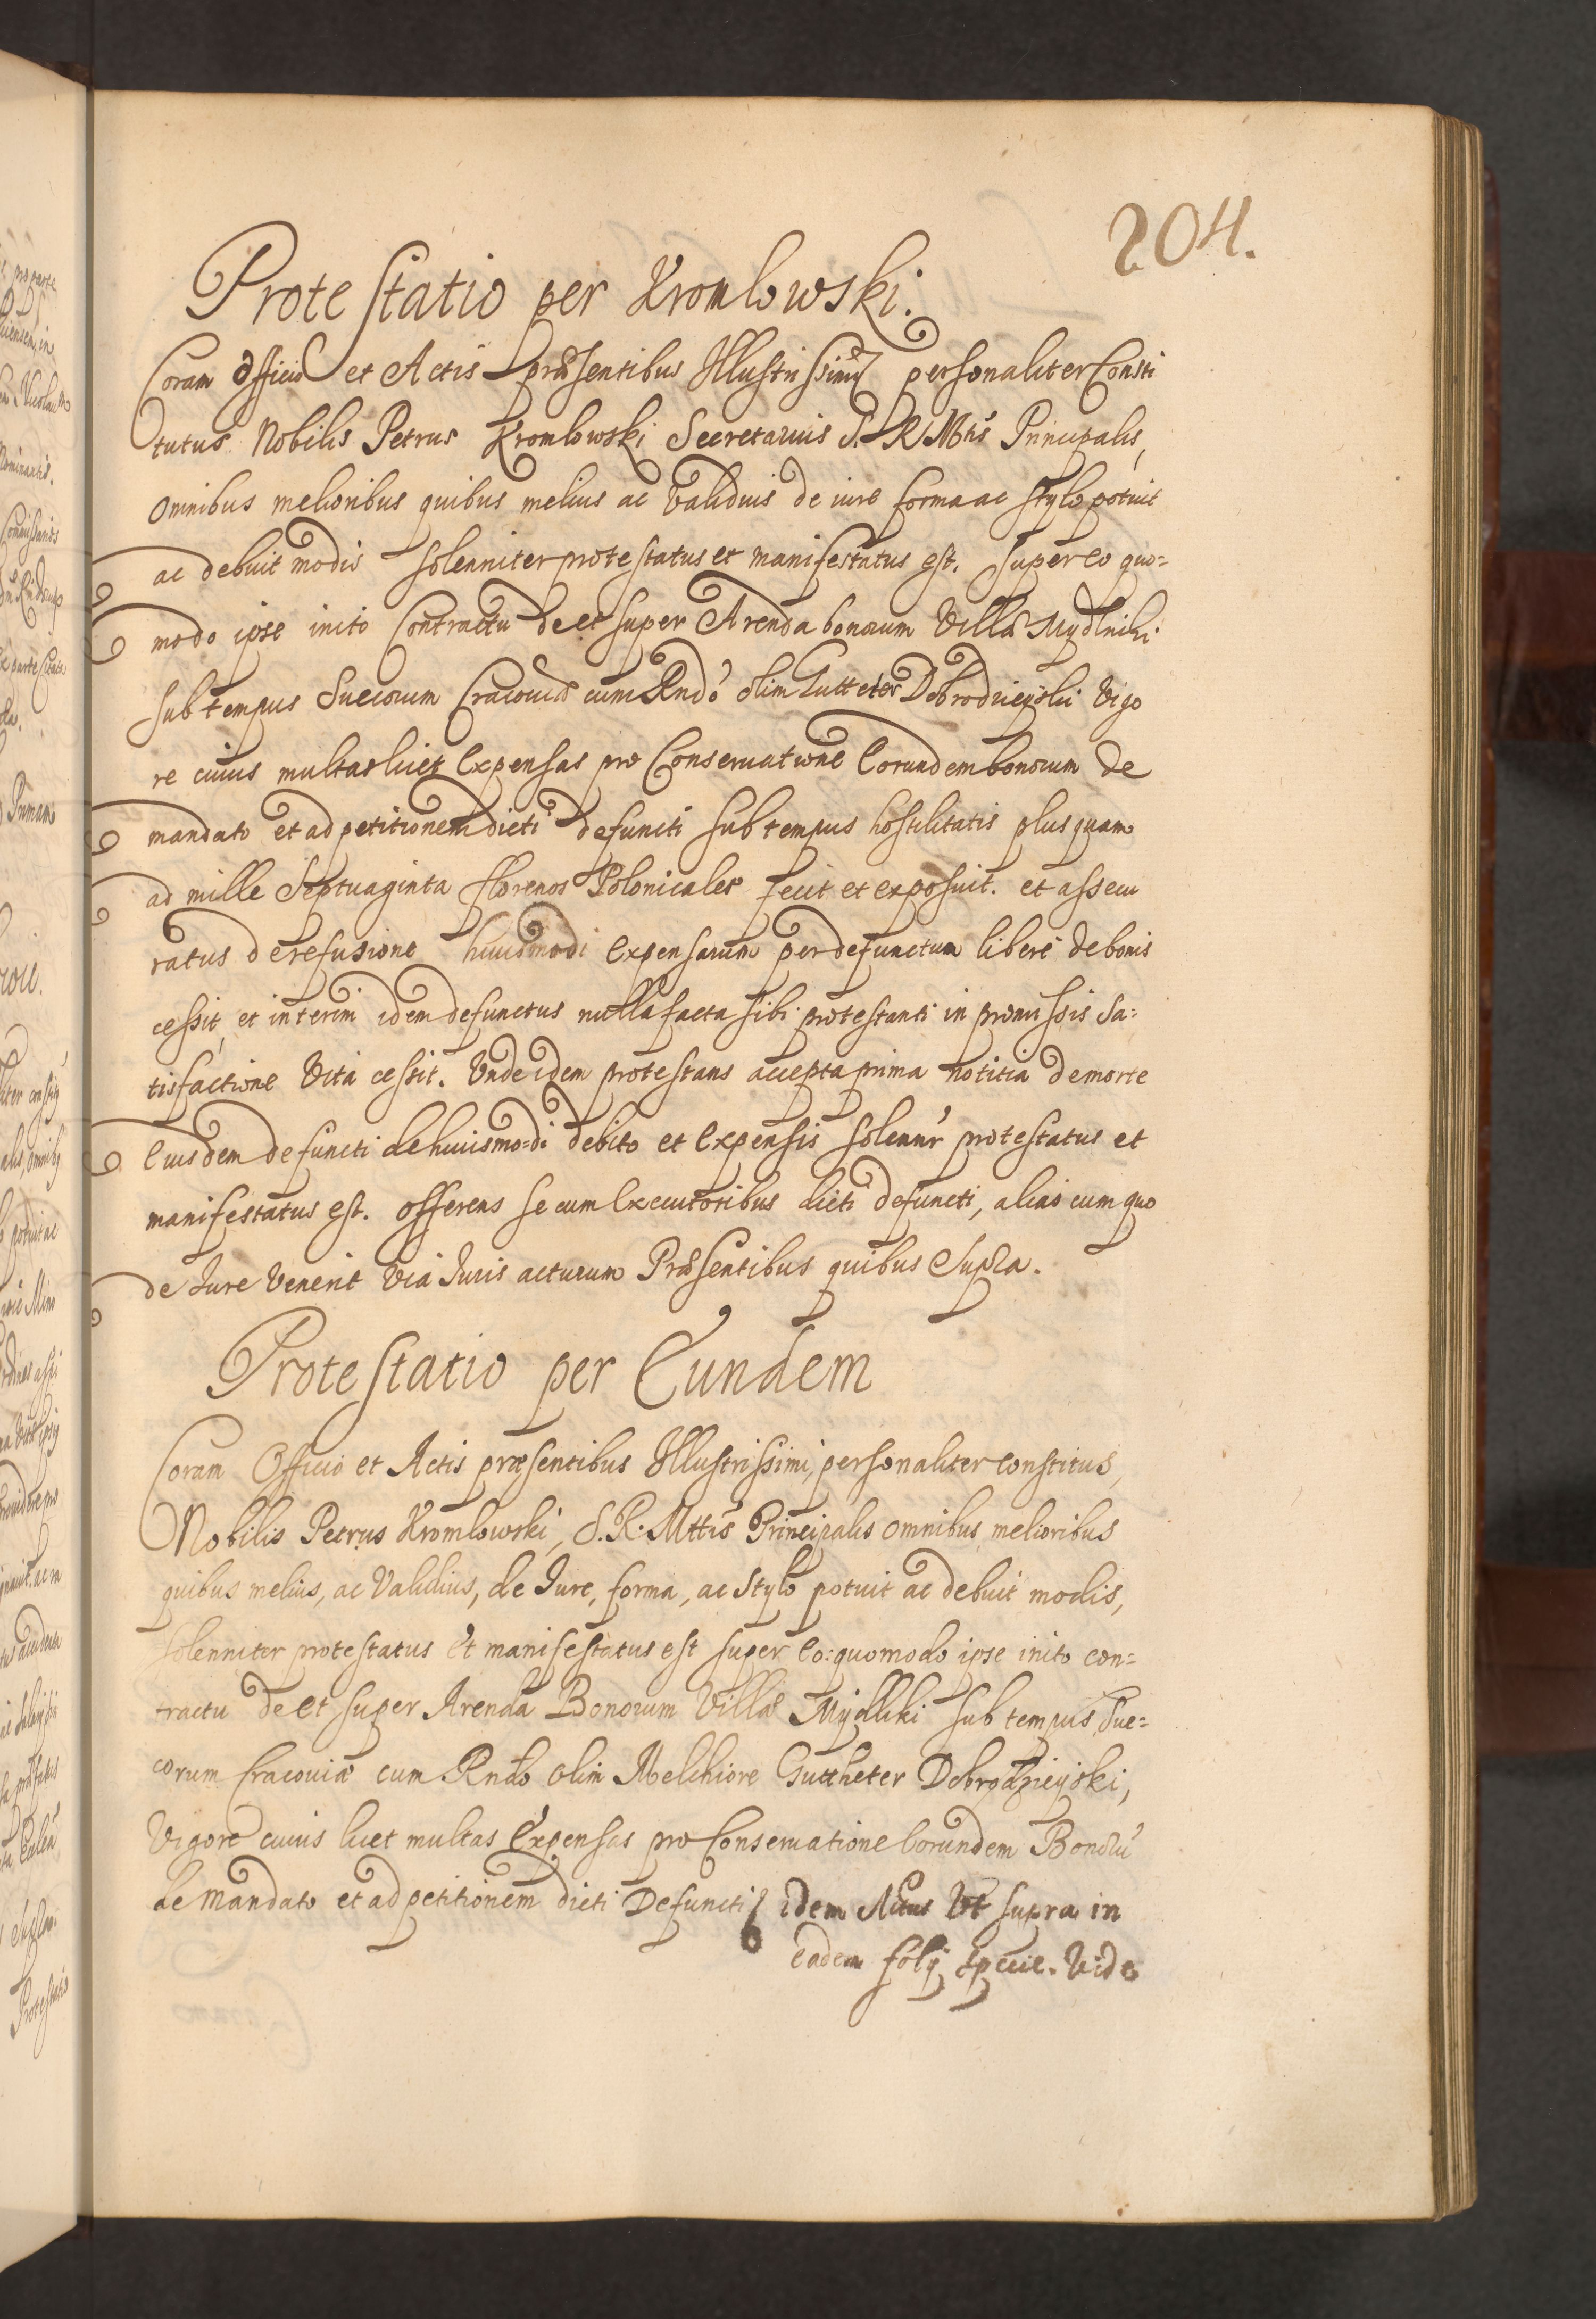 204.
Protestatio per Kromlowski.
Coram Officio et Actis præsentibus Illustrissimi personaliter Consti
tutus Nobilis Petrus Kromlowski Secretarius S. R. Mttis Principalis,
omnibus melioribus quibus melius ac validius de iure forma ac stylo potuit
ac debuit modis solenniter protestatus et manifestatus est. Super eo quo=
modo ipse inito Contractu de et super Arenda bonorum Villæ Mydlniki
sub tempus Suecorum Cracoviæ cum Rndo olim Gutteter Dobrodzieyski Vigo
re cuius multas licet Expensas pro Conservatione Eorundem bonorum de
mandato et ad petitionem dicti defuncti sub tempus hostilitatis plusquam
ad mille Septuaginta florenos Polonicales fecit et exposuit. et assecu
ratus de refusione huiusmodi Expensarum per defunctum liberè de bonis
cessit, et interim idem defunctus nulla facta sibi protestanti in præmissis sa=
tisfactione Vita cessit. Unde idem protestans accepta prima notitia de morte
Eiusdem defuncti de huiusmo=di debito et Expensis solennr protestatus et
manifestatus est. offerens se cum Executoribus dicti defuncti, alias cum quo
de Iure Venerit Via Iuris acturum Præsentibus quibus Supra.
Protestatio per Eundem
Coram Officio et Actis præsentibus Illustrissimi, personaliter constitus,
Nobilis Petrus Kromlowski, S. R. Mttis Principalis omnibus melioribus
quibus melius, ac Validius, de Iure, forma, ac Stylo potuit ac debuit modis,
solenniter protestatus Et manifestatus est super Eo: quomodo ipse inito con=
tractu de et super Arenda Bonorum Villæ Mydlki sub tempus Sue=
corum Cracoviæ cum Rndo olim Melchiore Guttheter Dobrodzieyski,
Vigore cuius licet multas Expensas pro Conservatione Eorundem Bonorū
de Mandato et ad petitionem dicti Defuncti idem Actus Vt supra in
eadem folij specie. Vide